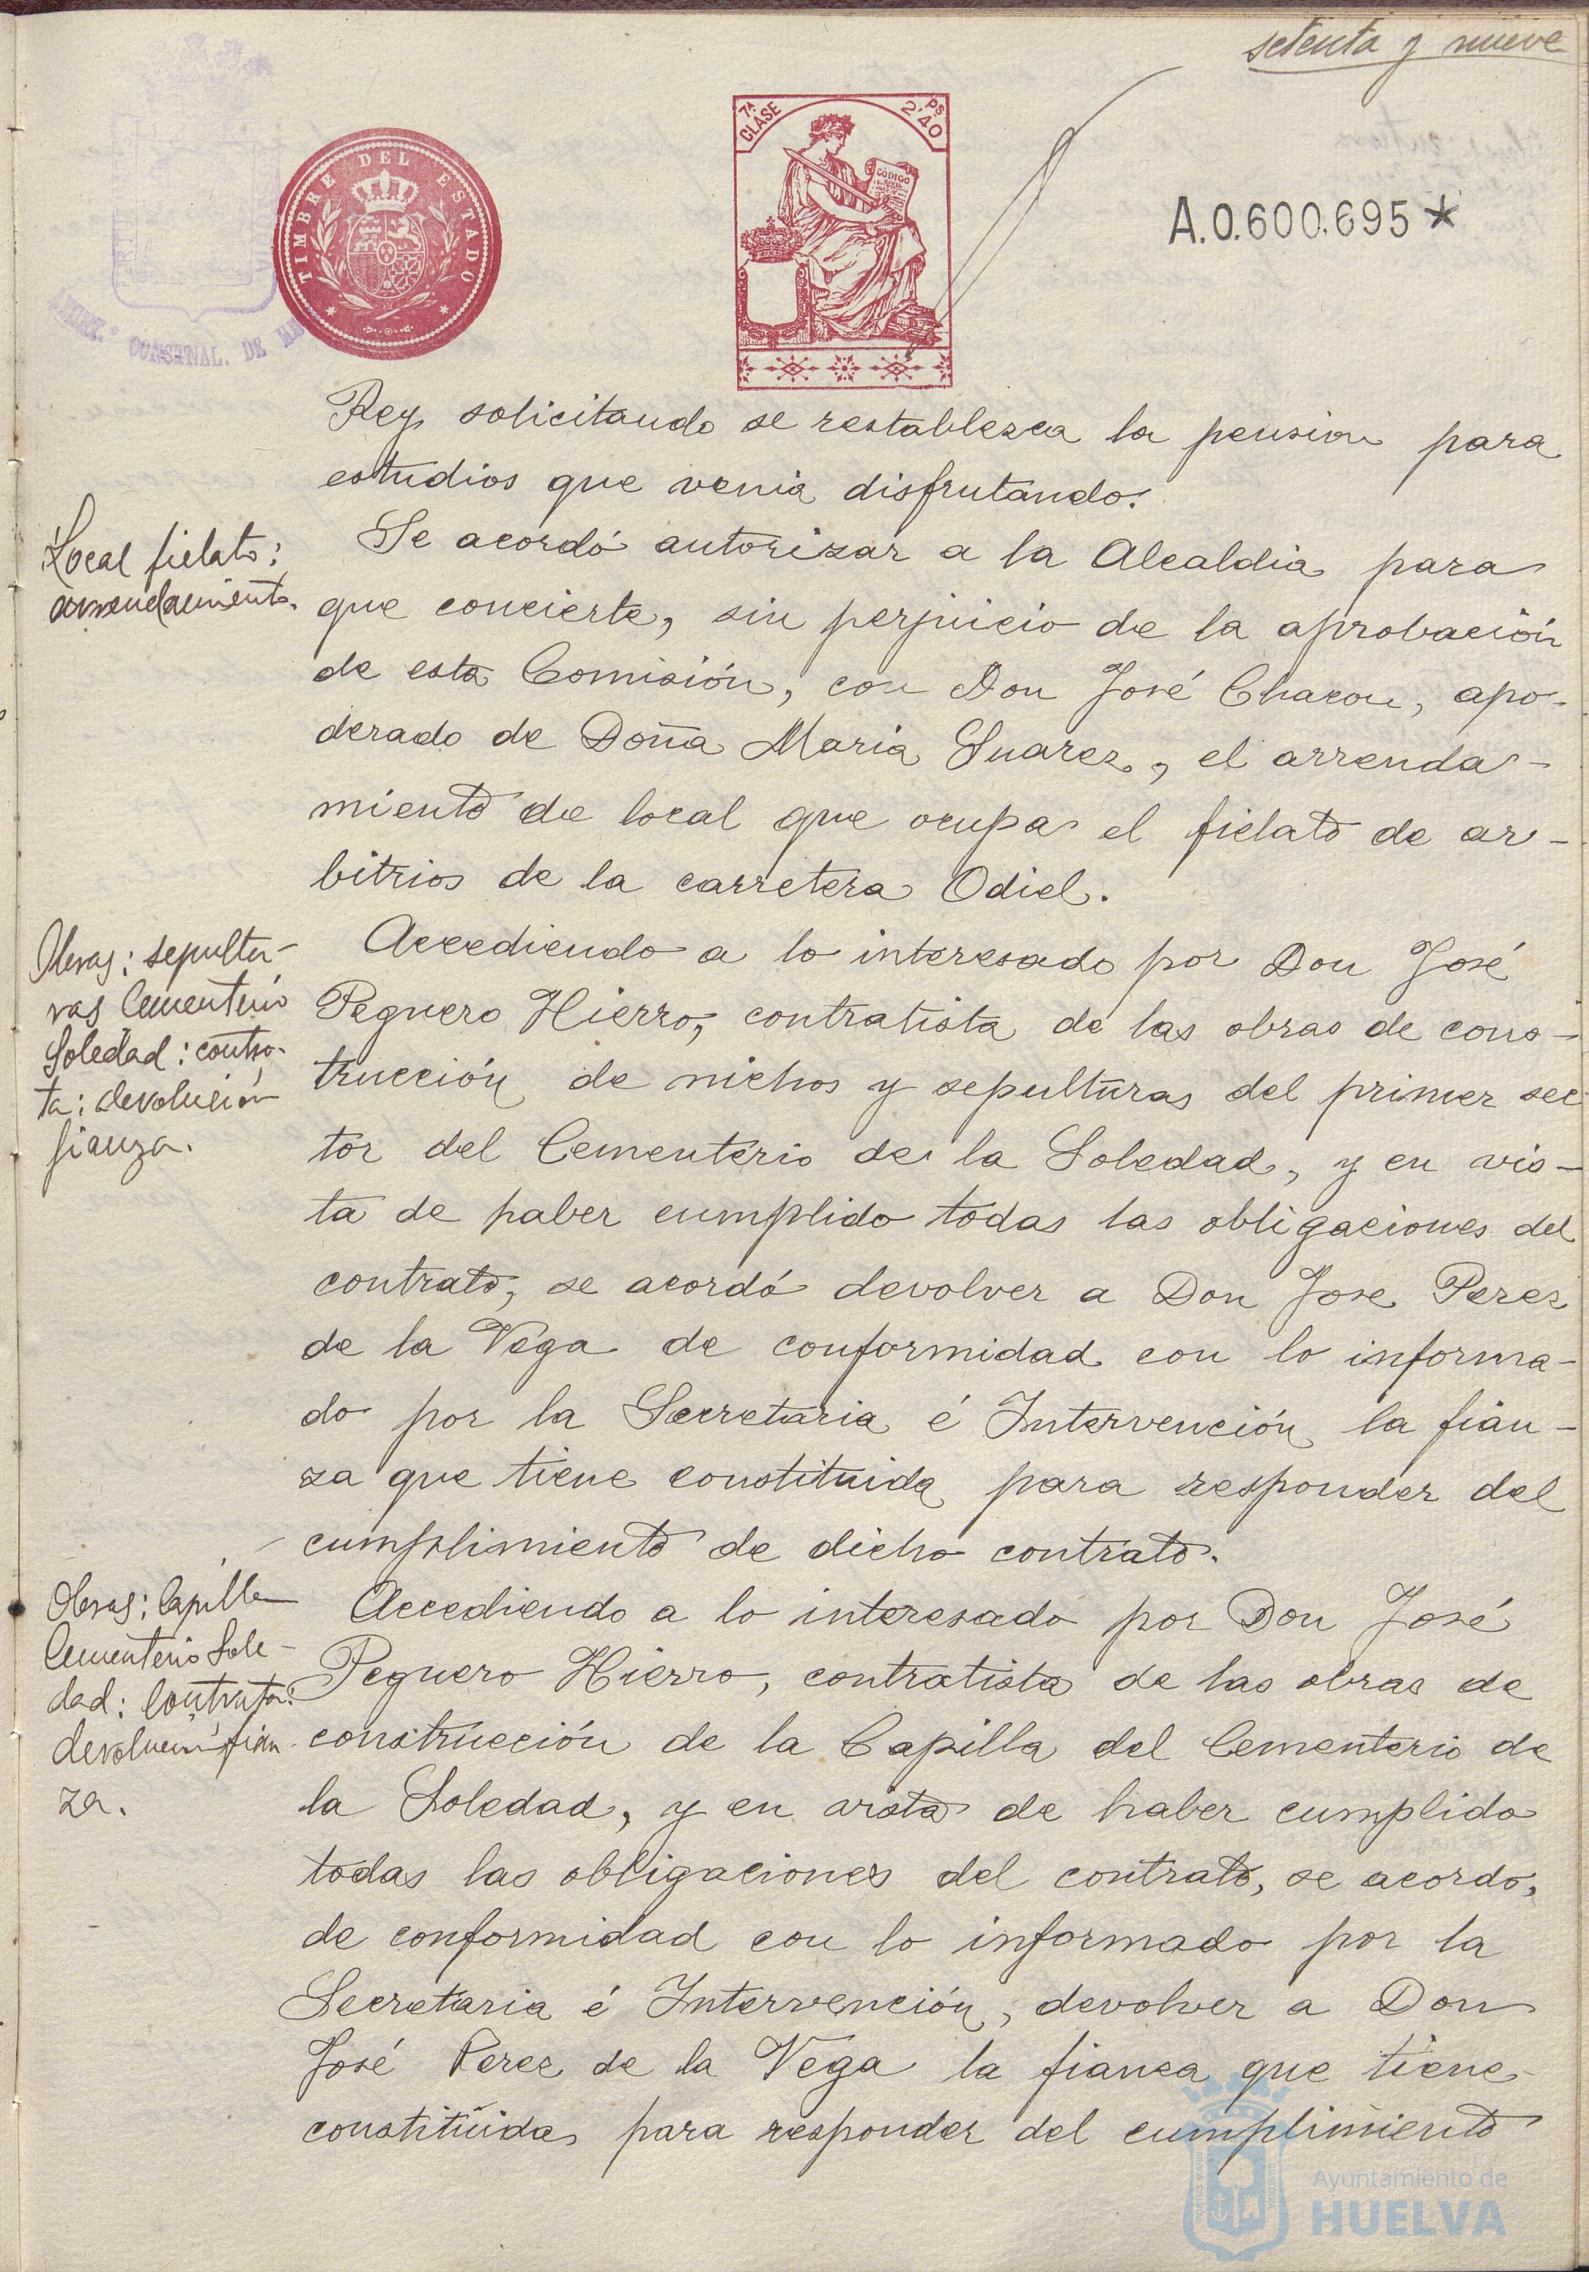 setenta y nueve
TIMBRE DEL ESTADO
7ª CLASE
2'40 Ps
CÓDIGO
A.0.600.695*
CONSTNAL. DE
Rey, solicitando se restablezca la pension para
estudios que venia disfrutando.
Local fielato:
arrendamiento.
Se acordó autorizar a la Alcaldia para
que concierte, sin perjuicio de la aprobación
de esta Comisión, con Don José Chacon, apo-
derado de Doña Maria Suarez, el arrenda-
miento de local que ocupa el fielato de ar-
bitrios de la carretera Odiel.
Obras: sepultu-
ras Cementerio
Soledad: contra-
ta: devolución
fianza.
Accediendo a lo interesado por Don José
Peguero Hierro, contratista de las obras de cons-
trucción de nichos y sepulturas del primer sec
tor del Cementerio de la Soledad, y en vis-
ta de haber cumplido todas las obligaciones del
contrato, se acordó devolver a Don Jose Perez
de la Vega de conformidad con lo informa-
do por la Secretaria é Intervención la fian-
za que tiene constituida para responder del
cumplimiento de dicho contrato.
Obras: Capilla
Cementerio Sole-
dad: Contrata:
devolución fian
za.
Accediendo a lo interesado por Don José
Peguero Hierro, contratista de las obras de
construcción de la Capilla del Cementerio de
la Soledad, y en vista de haber cumplido
todas las obligaciones del contrato, se acordo,
de conformidad con lo informado por la
Secretaria é Intervención, devolver a Don
José Perez de la Vega la fianza que tiene
constituida para responder del cumplimiento
Ayuntamiento de
HUELVA